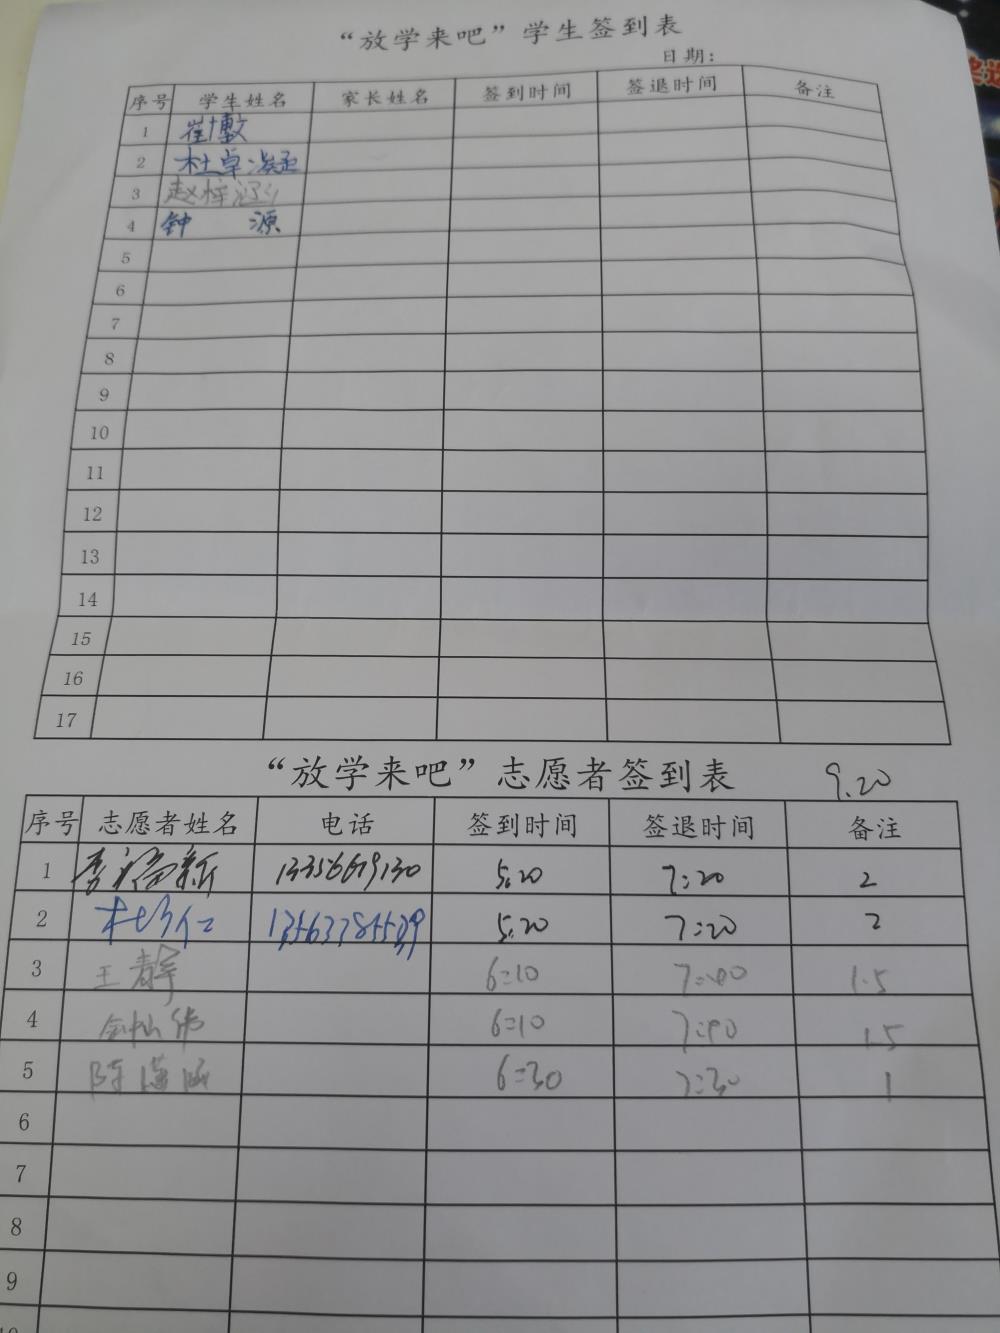 “放学来吧”学生签到表
日期：
序号 学生姓名 家长姓名 签到时间 签退时间 备注
1
2 杜卓凝
3 赵梓涵
4 钟 源
5
6
7
8
9
10
11
12
13
14
15
16
17
“放学来吧”志愿者签到表 9.20
序号 志愿者姓名 电话 签到时间 签退时间 备注
1 5:20 7:20 2
2 5:20 7:20 2
3 王静宇 6:10 7:40 1.5
4 6:10 7:40 1.5
5 陈潇涵 6:30 7:30 1
6
7
8
9
10